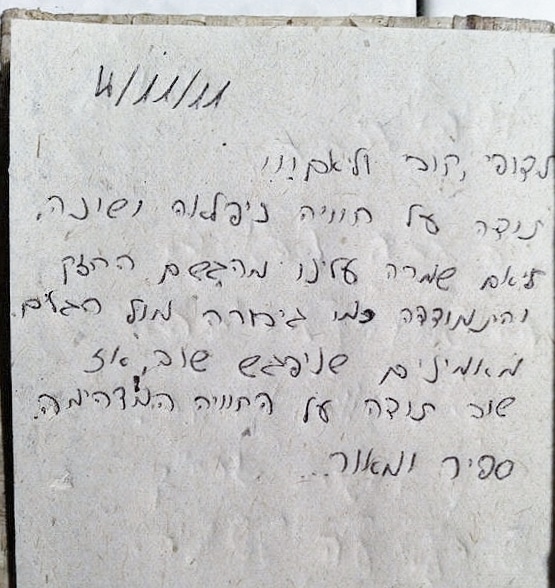 4/11/11
לצופי, קובי וליאם
תודה על חוויה ניפלאה ושונה.
ליאם שמרה עלינו מהגשם החזק
והתמודדה כמו גיבורה מול הגלים.
מאמינים שניפגש שוב, אז
שוב תודה על החוויה המדהימה.
ספיר ומאור...